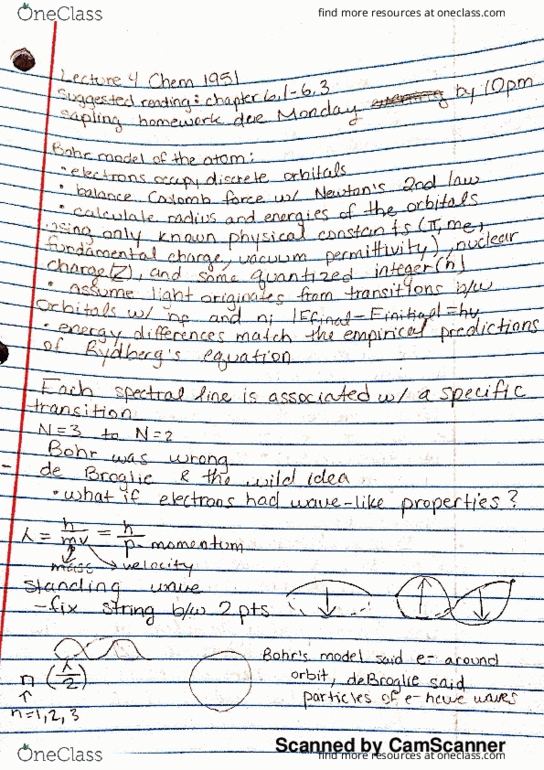 OneClass
find more resources at oneclass.com
Lecture 4 Chem 1951
Suggested reading: chapter 6.1-6.3
sapling homework due Monday by 10pm
Bohr model of the atom:
• electrons occupy discrete orbitals
• balance Coulomb force w/ Newton's 2nd law
• calculate radius and energies of the orbitals
using only known physical constants (π, me,
fundamental charge, vacuum permittivity), nuclear
charge (Z), and some quantized integer (n)
• assume light originates from transitions b/w
orbitals w/ nf and ni |Efinal-Einitial|=hν
• energy differences match the empirical predictions
of Rydberg's equation
Each spectral line is associated w/ a specific
transition
N=3 to N=2
Bohr was wrong
de Broglie & the wild idea
• what if electrons had wave-like properties?
λ = h/mv = h/p - momentum
mass velocity
standing wave
- fix string b/w 2 pts
n (λ/2)
n=1,2,3
Bohr's model said e- around
orbit, deBroglie said
particles of e- have waves
Scanned by CamScanner
OneClass
find more resources at oneclass.com